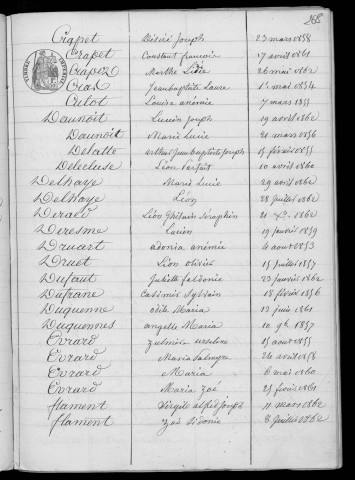 268
Crapet Désiré Joseph 23 mars 1858
Crapet Constant françois 17 avril 1861
Crapez Marthe Lidie 26 mai 1862
Cras Jeanbaptiste Laure 1r mai 1854
Crétot Louise anémie 7 mars 1855
Daunoit Lucien Joseph 19 avril 1862
Daunoit Marie Lucie 21 mars 1856
Delatte arthur Jeanbaptiste Joseph 15 février 1855
Delecluse Léon Parfait 10 avril 1860
Delhaye Marie Lucie 29 avril 1862
Delhaye Léon 28 Juillet 1862
Derard Léon Ghislain Séraphin 21 Xbre 1862
Deresme Lucien 19 Janvier 1859
Drucart adonia anémie 4 aout 1853
Druet Léon olivier 15 Juillet 1857
Dufaut Juliette faldonie 23 Janvier 1862
Dufrane Casimir Sylvain 18 février 1856
Duquenne odile Maria 13 Juin 1861
Duquennes angelle Maria 10 9bre 1857
Evrard Zulmireurselene 15 aout 1855
Evrard Maria Palmyre 26 avril 1858
Evrard Maria 6 mai 1860
Evrard Maria Zoé 25 février 1861
flament Virgile alfred Joseph 11 mars 1860
flament Zoé Sidonie 8 Juillet 1862